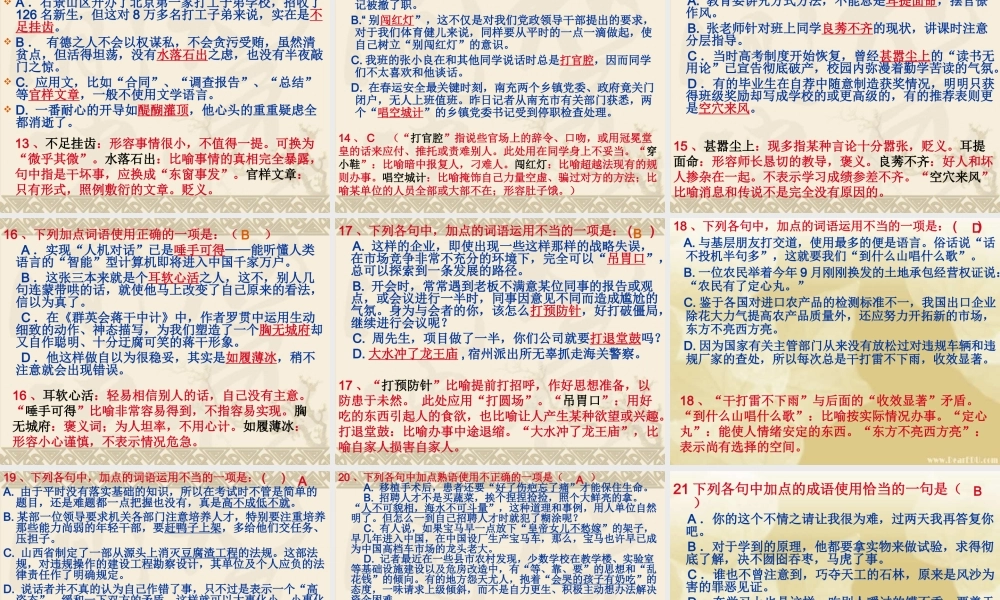 A．石景山区开办了北京第一家打工子弟学校，招收了
126 名新生，但这对 8 万多名打工子弟来说，实在是不
足挂齿。
B． 有德之人不会以权谋私，不会贪污受贿，虽然清
贫点，但活得坦荡，没有水落石出之虑，也没有半夜敲
门之惊。
C. 应用文，比如“合同”、“调查报告”、“总结”
等官样文章，一般不使用文学语言。
D．一番耐心的开导如醍醐灌顶，他心头的重重疑虑全
都消逝了。
13 、不足挂齿：形容事情很小，不值得一提。可换为
“微乎其微”。水落石出：比喻事情的真相完全暴露，
句中指是干坏事，应换成“东窗事发”。官样文章：
只有形式，照例敷衍的文章。贬义。
记被撤了职。
B.“别闯红灯”，这不仅是对我们党政领导干部提出的要求，
对于我们体育健儿来说，同样要从平时的一点一滴做起，使
自己树立“别闯红灯”的意识。
C. 我班的张小良在和其他同学说话时总是打官腔，因而同学
们不太喜欢和他谈话。
D. 在春运安全最关键时刻，南充两个乡镇党委、政府竟关门
闭户，无人上班值班。昨日记者从南充市有关部门获悉，两
个“唱空城计”的乡镇党委书记受到停职检查处理。
14 、 C （“打官腔”指说些官场上的辞令、口吻，或用冠冕堂
皇的话来应付、推托或责难别人。此处用在同学身上不妥当。“穿
小鞋”：比喻暗中报复人，刁难人。闯红灯：比喻超越法现有的规
则办事。唱空城计：比喻掩饰自己力量空虚、骗过对方的方法；比
喻某单位的人员全部或大部不在；形容肚子饿。）
A. 教育要讲究方式方法，不能总是耳提面命，摆官僚
作风。
B. 张老师针对班上同学良莠不齐的现状，讲课时注意
分层指导。
C．当时高考制度开始恢复，曾经甚嚣尘上的“读书无
用论”已宣告彻底破产，校园内弥漫着勤学苦读的气氛。
D．有的毕业生在自荐中随意制造获奖情况，明明只获
得班级奖励却写成学校的或更高级的，有的推荐表则更
是空穴来风。
15 、甚嚣尘上：现多指某种言论十分嚣张，贬义。耳提
面命：形容师长恳切的教导，褒义。良莠不齐：好人和坏
人掺杂在一起。不表示学习成绩参差不齐。“空穴来风”
比喻消息和传说不是完全没有原因的。
16 、下列加点词语使用正确的一项是：（ B ）
A．实现“人机对话”已是唾手可得——能听懂人类
语言的“智能”型计算机即将进入中国千家万户。
B．这张三本来就是个耳软心活之人，这不，别人几
句连蒙带哄的话，就使他马上改变了自己原来的看法，
信以为真了。
C．在《群英会蒋干中计》中，作者罗贯中运用生动
细致的动作、神态描写，为我们塑造了一个胸无城府却
又自作聪明、十分迂腐可笑的蒋干形象。
D．他这样做自以为很稳妥，其实是如履薄冰，稍不
注意就会出现错误。
16 、耳软心活：轻易相信别人的话，自己没有主意。
“唾手可得”比喻非常容易得到，不指容易实现。胸
无城府：褒义词；为人坦率，不用心计。如履薄冰：
形容小心谨慎，不表示情况危急。
17 、下列各句中，加点的词语运用不当的一项是：( B )
A. 这样的企业，即使出现一些这样那样的战略失误，
在市场竞争非常不充分的环境下，完全可以“吊胃口”，
总可以探索到一条发展的路径。
B. 开会时，常常遇到老板不满意某位同事的报告或观
点，或会议进行一半时，同事因意见不同而造成尴尬的
气氛。身为与会者的你，该怎么打预防针，好打破僵局，
继续进行会议呢？
C. 周先生，项目做了一半，你们公司就要打退堂鼓吗？
D. 大水冲了龙王庙，宿州派出所无辜抓走海关警察。
17 、“打预防针”比喻提前打招呼，作好思想准备，以
防患于未然。 此处应用“打圆场”。“吊胃口”：用好
吃的东西引起人的食欲，也比喻让人产生某种欲望或兴趣。
打退堂鼓：比喻办事中途退缩。“大水冲了龙王庙”，比
喻自家人损害自家人。
18 、下列各句中，加点的词语运用不当的一项是：( D )
A. 与基层朋友打交道，使用最多的便是语言。俗话说“话
不投机半句多”，这就要我们“到什么山唱什么歌”。
B. 一位农民举着今年 9 月刚刚换发的土地承包经营权证说：
“农民有了定心丸。”
C. 鉴于各国对进口农产品的检测标准不一，我国出口企业
除花大力气提高农产品质量外，还应努力开拓新的市场，
东方不亮西方亮。
D. 因为国家有关主管部门从来没有放松过对违规车辆和违
规厂家的查处，所以每次总是干打雷不下雨，收效显著。
18 、“干打雷不下雨”与后面的“收效显著”矛盾。
“到什么山唱什么歌”：比喻按实际情况办事。“定心
丸”：能使人情绪安定的东西。“东方不亮西方亮”：
表示尚有选择的空间。
19 、下列各句中，加点的词语运用不当的一项是：( ) A
A. 由于平时没有落实基础的知识，所以在考试时不管是简单的
题目，还是难题都一点把握也没有，真是高不成低不就。
B. 某部一位领导要求机关各部门注意培养人才，特别要注重培养
那些能力尚弱的年轻干部，要赶鸭子上架，多给他们交任务、
压担子。
C. 山西省制定了一部从源头上消灭豆腐渣工程的法规。这部法
规，对违规操作的建设工程勘察设计，其单位及个人应负的法
律责任作了明确规定。
D. 说话者并不真的认为自己作错了事，只不过是表示一个“高
20 、下列各句中加点熟语使用不正确的一项是（ A ）
A. 移植手术后，患者还要“好了伤疤忘了痛”才能保住生命。
B. 招聘人才不是买蔬菜，挨个捏捏捡捡，照个大鲜亮的拿。
“人不可貌相，海水不可斗量”，这种道理和事例，用人单位自然
明了。但怎么一到自己招聘人才时就犯了糊涂呢？
C. 有人说，如果宝马早一点放下“皇帝女儿不愁嫁”的架子，
早几年进入中国，在中国设厂生产宝马车，那么，宝马也许早已成
为中国高档车市场的龙头老大。
D. 记者最近在一些县市农村发现，少数学校在教学楼、实验室
等基础设施建设以及危房改造中，有“等、靠、要”的思想和“乱
花钱”的倾向。有的地方怨天尤人，抱着“会哭的孩子有奶吃”的
态度，一味请求上级倾斜，而不是自力更生、积极主动想办法解决
21 下列各句中加点的成语使用恰当的一句是（ B
）
A ．你的这个不情之请让我很为难，过两天我再答复你
吧。
B．对于学到的原理，他都要拿实物来做试验，求得彻
底了解，决不囫囵吞枣，马虎了事。
C．谁也不曾注意到，巧夺天工的石林，原来是风沙为
害的罪恶见证。